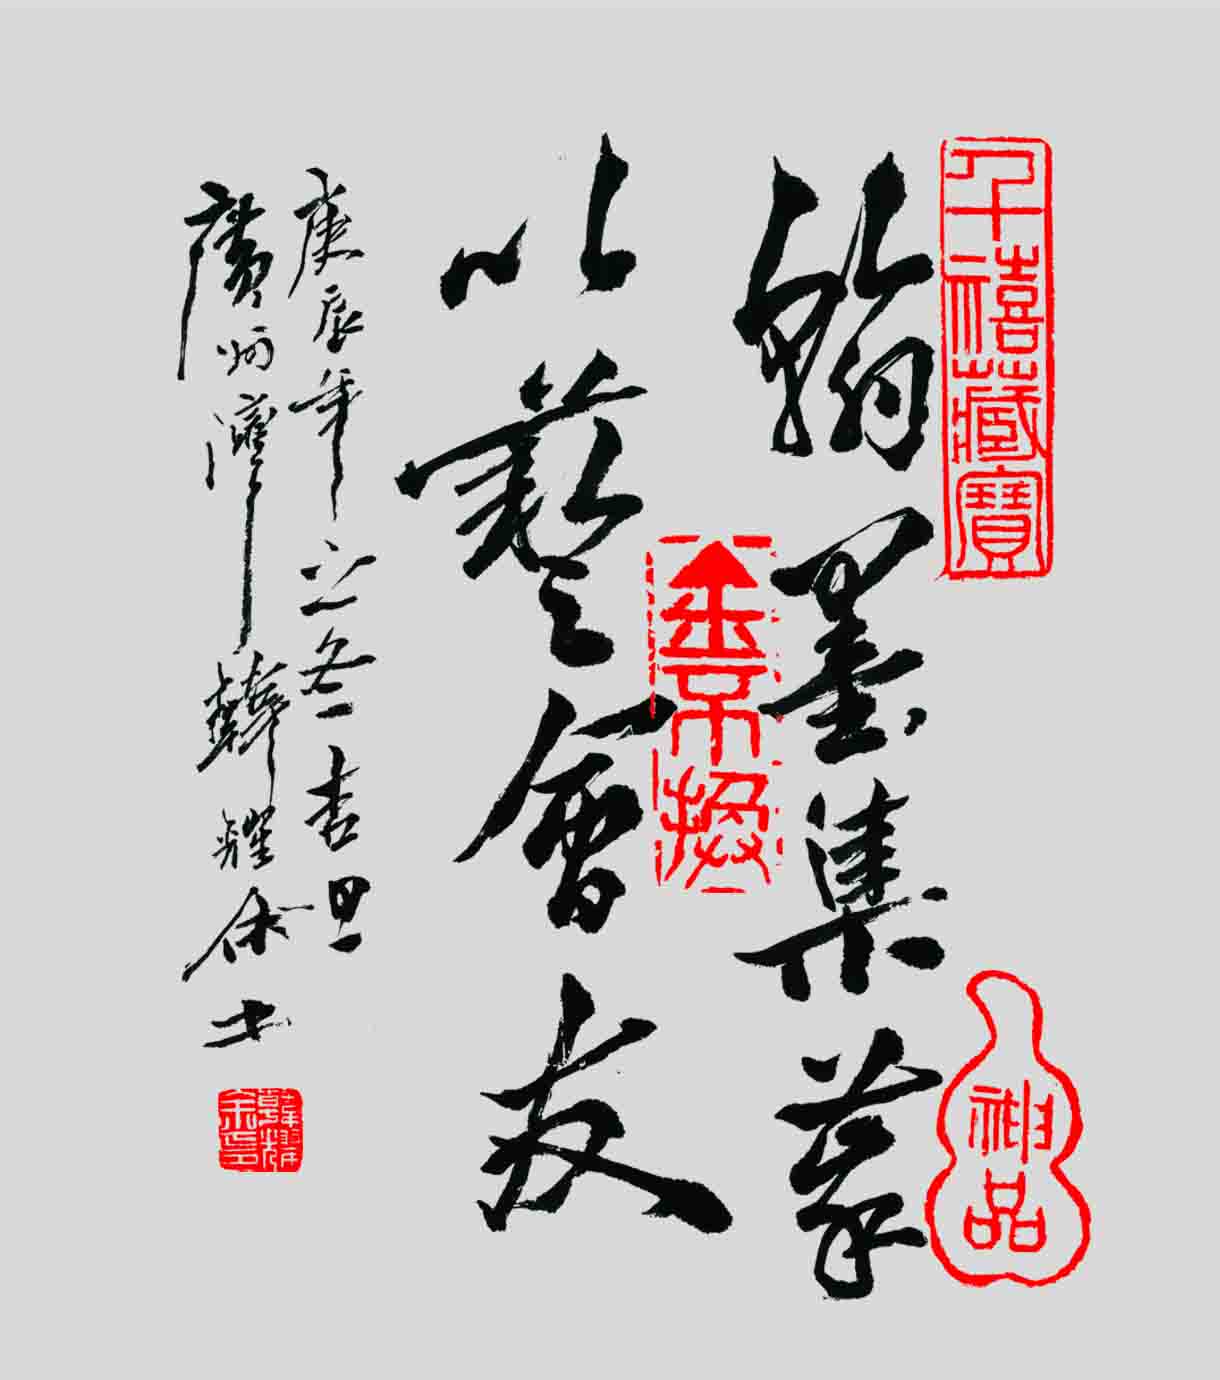 千禧藏寶
翰墨集萃
神品
金不換
以藝會友
庚辰年之冬吉旦
廣州韓耀余書
韓耀余印